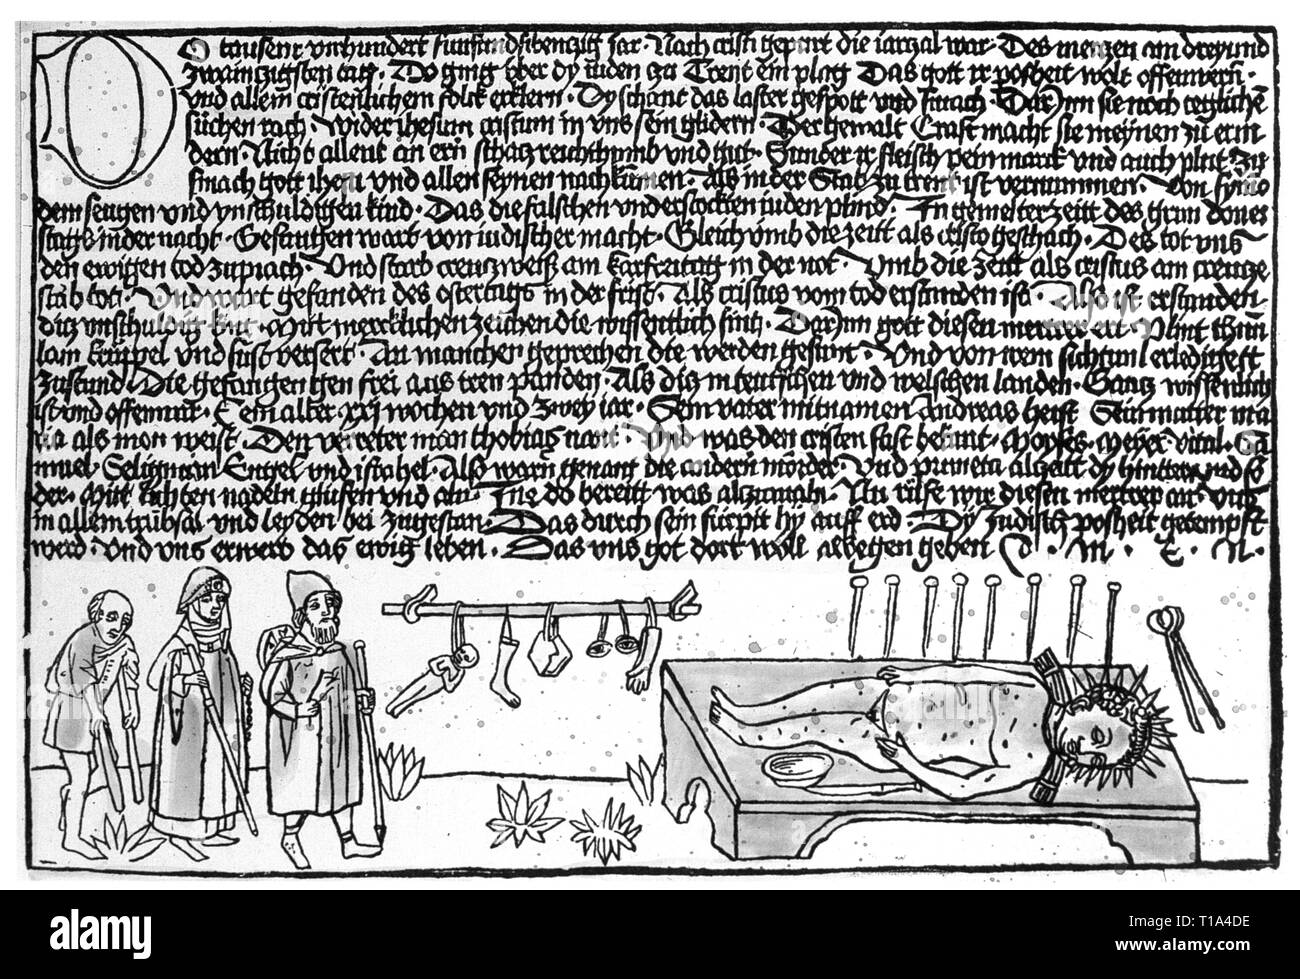 DO tausent vnd hundert funfundsibenzig jar · Nach cristi gepurt die iarzal war · Des merzen am dreyund
zwainzigsten tag · Do ging vber dy iuden zu Trent ein plag Das gott ir posheit wolt offenwern
vnd allem cristenlichem folck erklern · Dy schant das laster gespott vnd smach · Darum sie noch teglichen
suchen rach · wider ihesum cristum in vns sein glidern · Der gewalt macht sie meynen zu
dern · Nicht allein an ern schatz reichthumb vnd gut · Sunder ir fleisch pein marck vnd auch plut zu
smach gott ihesu vnd allen seynen nachkumen · Als in der Stat zu trent ist vernummen · Von symo
dem seligen vnd vnschuldigen kind · Das die falschen vnd verstockten iuden plind · In gemelter zeitt des grun doner
stags in der nacht · Gefangen wart von iudischer macht · Gleich vmb die zeitt als cristo geschach · Des tot vns
den ewigen tod zuprach · Vnd starb creuzweiß am karfreitag in der not · Vmb die zeitt als cristus am creuze
stab tot · Vnd wart gefunden des ostertags in der frist · Als cristus vom tod erstanden ist · Also ist erstanden
ditz vnschuldig kint · Mit mercklichen zeichen die wissentlich sint · Darum gott diesen mertrer ert · Plint
lam kruppel vnd sust versert · An mancher geprechen die werden gesunt · Vnd von
zustund Die gefangen gen frei aus iren panden · Als ditz in teutschen vnd welschen landen · Gantz wissenlich
ist vnd offenwar · E ein alter xxi wochen vnd zwey jar · Sein vater mit namen Andreas heist Sein muter ma
ria als mon weist · Den verreter man thobias nant · vnd was den cristen fast bekant · Moyses · Meyer · vital · Sa
muel · Seligman Engel · vnd istahel · Also warn genant die andern morder · Vnd
der · Mit nadeln vnd · do bereitt was alzumaln · Nu rufe wir diesen mertrer an · vns
in allem trubsal vnd leyden bei zugestan · Das durch sein furpit hy auff erd · Dy Judisch posheit getempft
werd · Vnd vns erwerb das ewig leben · Das vns got dort woll albegen geben A · M · E · N ·
alamy
a
alamy
Image ID: T1A4DE
www.alamy.com